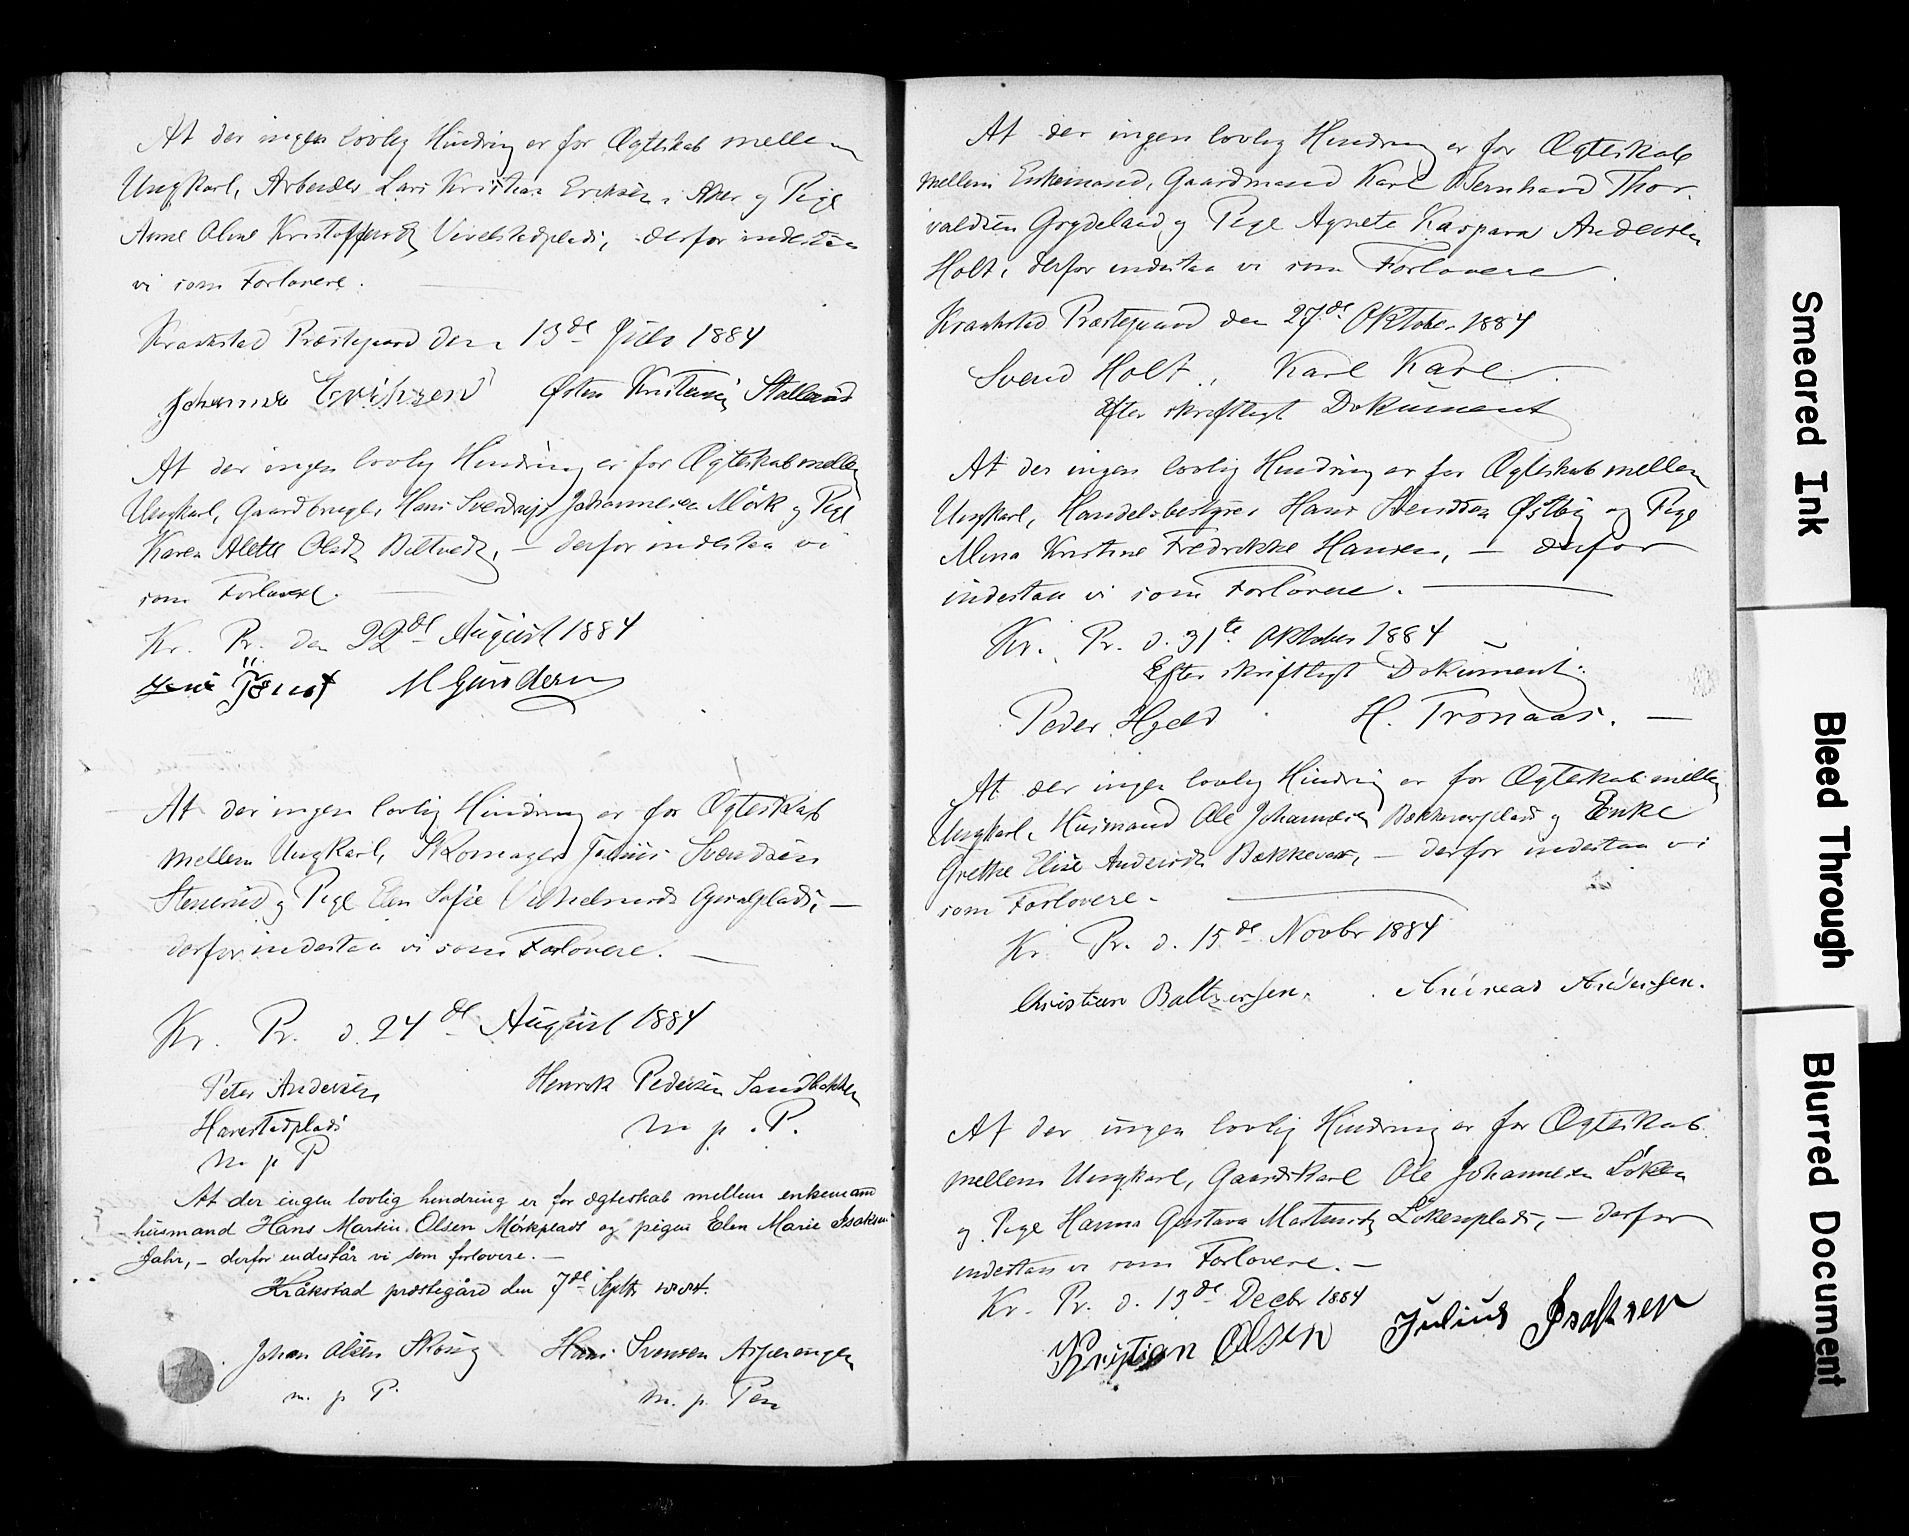 At der ingen lovlig Hindring er for Ægteskab mellem
Ungkarl, Arbeider Lars Kristian Eriksen, Aker og Pige
Anne Oline Kristoffersdt, derfor indestaa
vi som Forlovere.
Kraakstad Præstegaard den 13de Juli 1884
Johannes Eriksen Østen Kristensen
At der ingen lovlig Hindring er for Ægteskab mellem
Ungkarl, Gaardbruger Hans Sverdrup Johannesen Mörk og Pige
Karen Alette Olsdt, – derfor indestaa vi
som Forlovere.
Kr. Pr. den 22de August 1884
M Gundersen
At der ingen lovlig Hindring er for Ægteskab
mellem Ungkarl, Skomager Julius Svendsen
Stenerud og Pige Elen Sofie Vilhelmsdt –
derfor indestaa vi som Forlovere. –
Kr. Pr. d. 24de August 1884
Peter Andersen Henrik Pedersen Sandbakken
Harestadplads m. p. P.
m p P
At der ingen lovlig hindring er for ægteskab mellem enkemand
husmand Hans Martin Olsen Mörkplads og pigen Elen Marie Isaksen
Jahr, – derfor indestår vi som forlovere. –
Kråkstad præstegård den 7de Septbr 1884.
Johan Olsen Skoug Hans Svensen Asperengen
m. p P. m. p. Pen
At der ingen lovlig Hindring er for Ægteskab
mellem Enkemand, Gaardmand Karl Bernhard Thor-
valdsen Grydeland og Pige Agnete Kaspara Andersen
Holt, derfor indestaa vi som Forlovere.
Kraakstad Præstegaard den 27de Oktober 1884
Svend Holt, Karl Karl
Efter skriftligt Dokument
At der ingen lovlig Hindring er for Ægteskab mellem
Ungkarl, Handelsbestyrer Hans Svendsen Østby og Pige
Mina Kristine Fredrikke Hansen, – derfor
indestaa vi som Forlovere. –
Kr. Pr. d. 31te Oktober 1884
Efter skriftligt Dokument.
Peder Hjeld H. Tronaas. –
At der ingen lovlig Hindring er for Ægteskab mellem
Ungkarl, Husmand Ole Johannesen Bækkevarplads og Enke
Grethe Elise Andersdt Bækkevar, – derfor indestaa vi
som Forlovere. –
Kr. Pr. d. 15de Novbr 1884
Christian Baltzersen. Andreas Andersen.
At der ingen lovlig Hindring er for Ægteskab
mellem Ungkarl, Gaardskarl Ole Johannesen Løken
og Pige Hanna Gustava Martinsdt Løkenplads, – derfor
indestaa vi som Forlovere. –
Kr. Pr. d. 13de Decbr 1884
Kristian Olsen Julius Isaksen
Smeared Ink
Bleed Through
Blurred Document